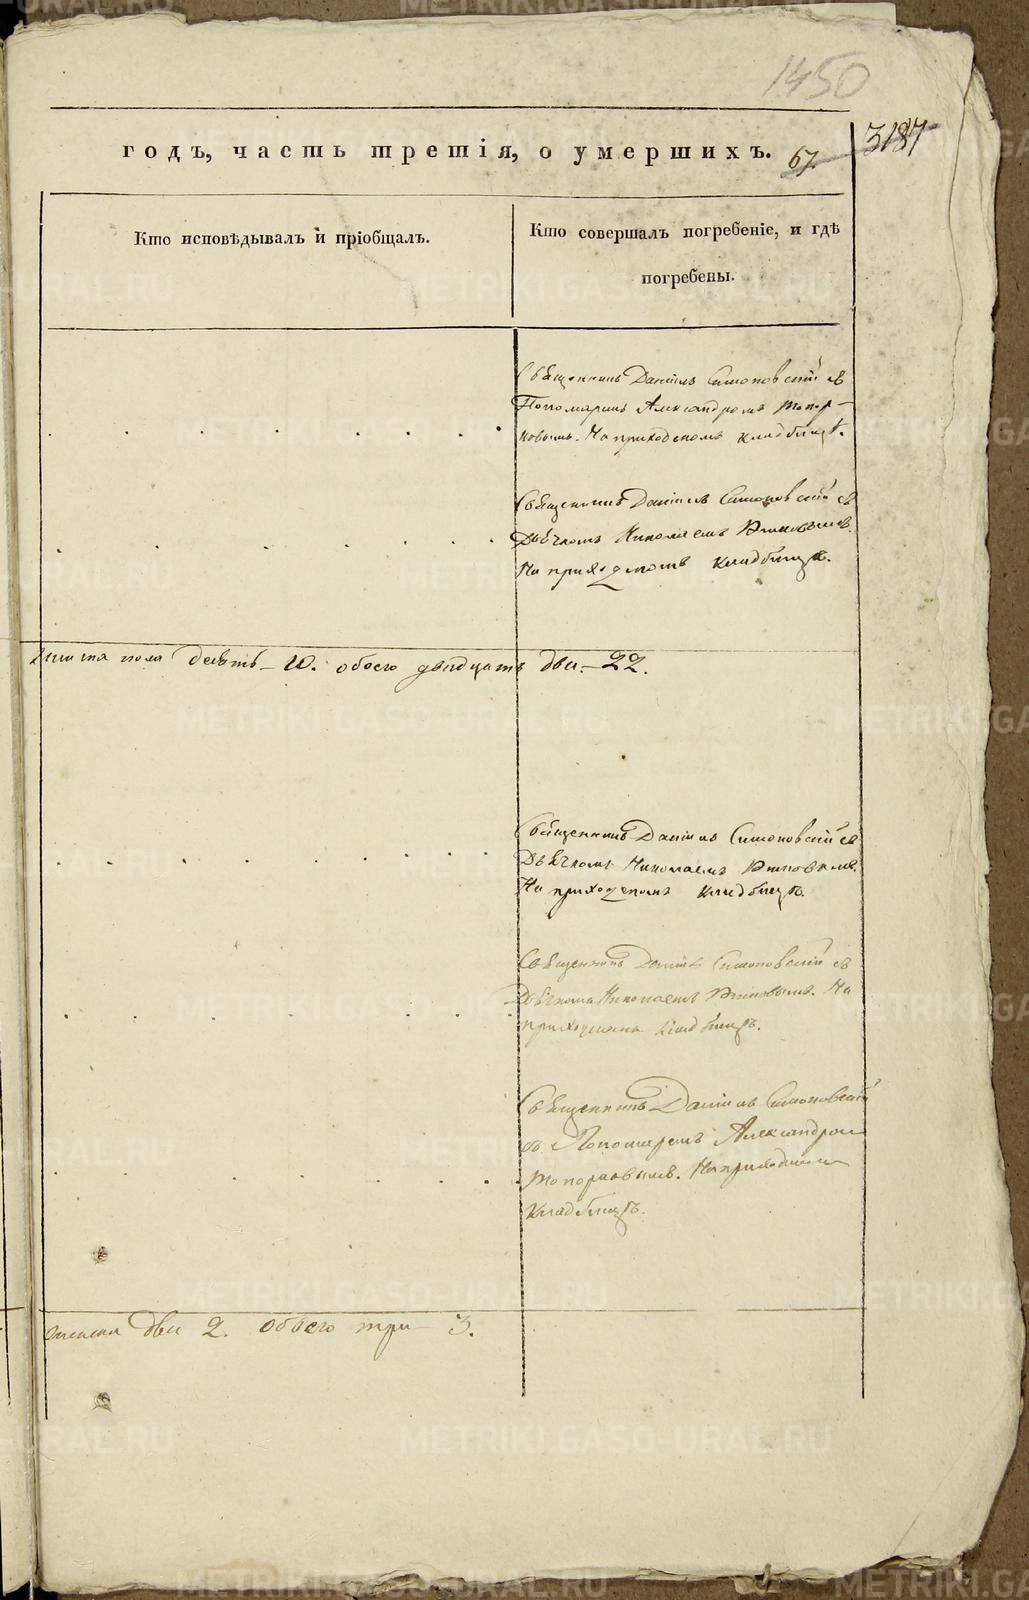 1450
3187
годъ, часть третія, о умершихъ. 67.
Кто исповѣдывалъ и пріобщалъ.
Кто совершалъ погребеніе, и гдѣ
погребены.
Священникъ Даніилъ Симоновскій съ
Пономаремъ Александромъ Топор-
ковымъ. На приходскомъ кладбищѣ.
Священникъ Даніилъ Симоновскій съ
Дьячкомъ Николаемъ
На приходскомъ кладбищѣ.
пола десять - 10. обоего двадцать два - 22.
Священникъ Даніилъ Симоновскій съ
Дьячкомъ Николаемъ
На приходскомъ кладбищѣ.
Священникъ Даніилъ Симоновскій съ
Дьячкомъ Николаемъ На
приходскомъ кладбищѣ.
Священникъ Даніилъ Симоновскій
съ Пономаремъ Александромъ
Топорковымъ. На приходскомъ
кладбищѣ.
женска два 2. обоего три - 3.
METRIKI.GASO-URAL.RU